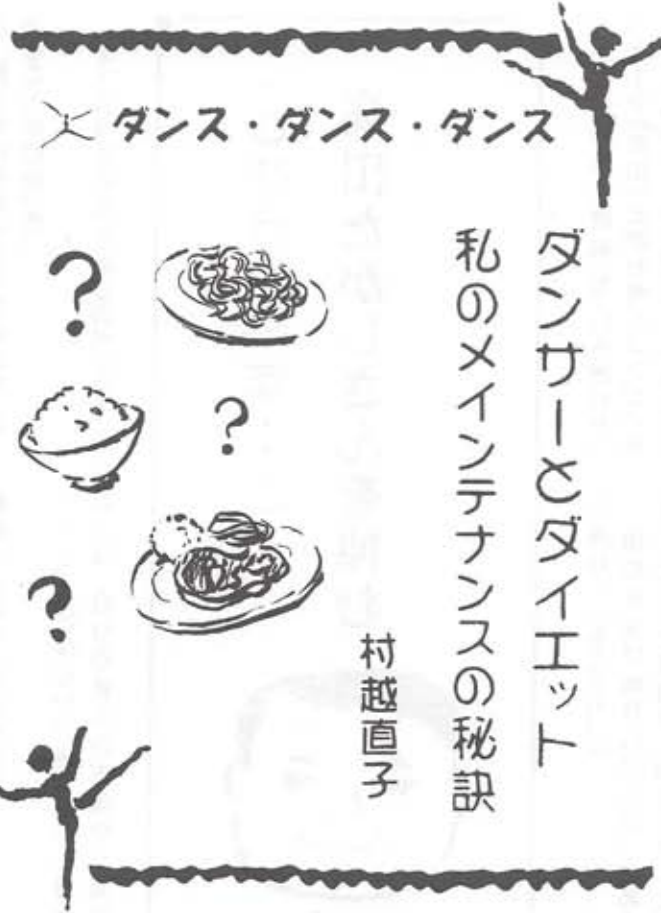 ダンス・ダンス・ダンス
ダンサーとダイエット
私のメインテナンスの秘訣
村越直子
?
?
?